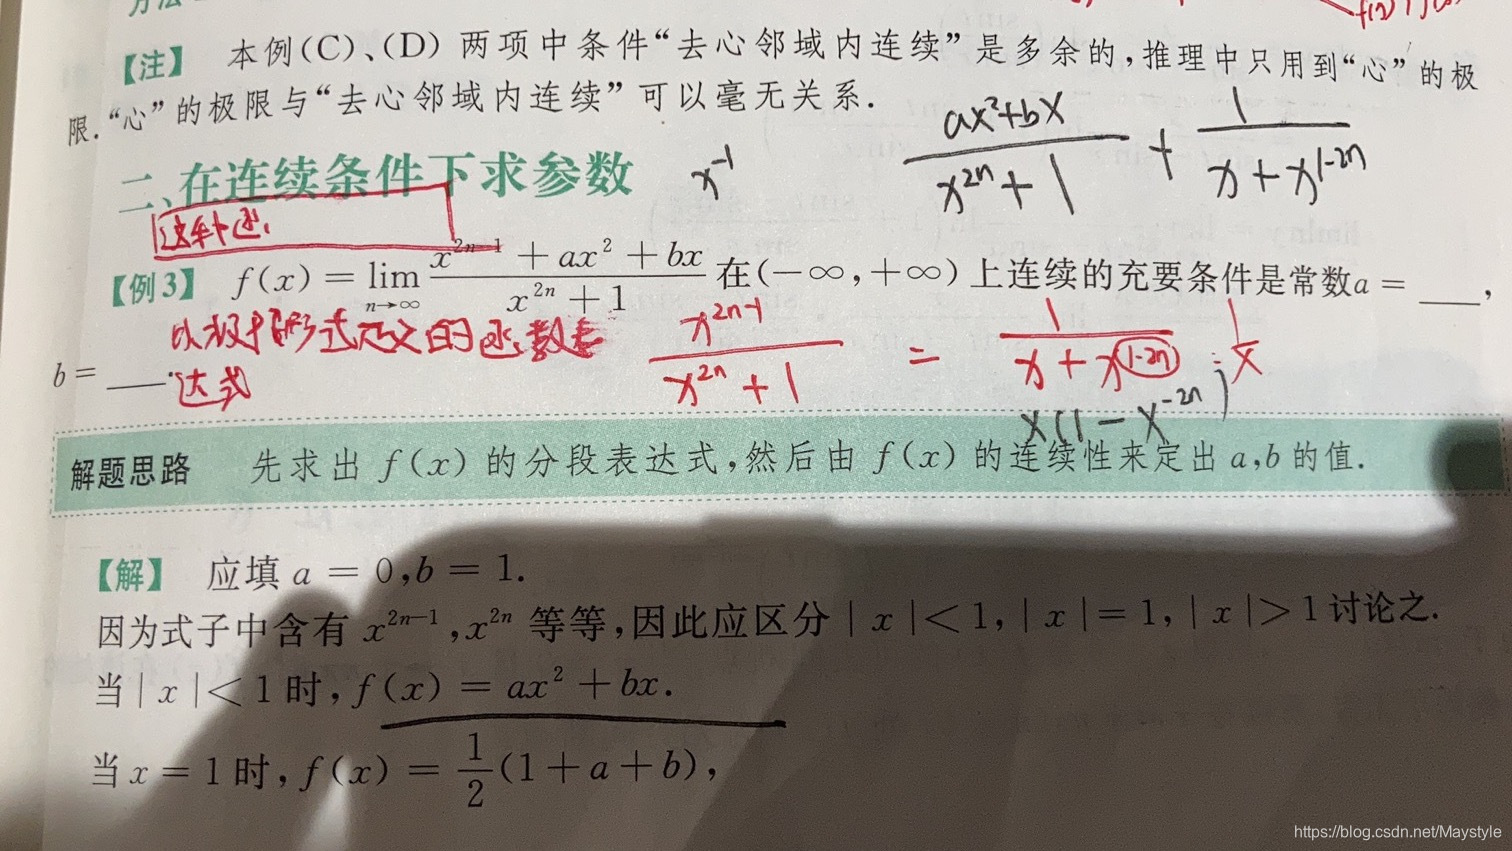 方法
f(x)
【注】 本例(C)、(D) 两项中条件“去心邻域内连续”是多余的,推理中只用到“心”的极
限.“心”的极限与“去心邻域内连续”可以毫无关系.
ax²+bx / x²ⁿ+1 + 1 / x+x¹⁻²ⁿ
x⁻¹
二、在连续条件下求参数
这种题
【例3】 f(x) = lim n→∞ (x²ⁿ⁻¹ + ax² + bx) / (x²ⁿ + 1) 在(−∞,+∞)上连续的充要条件是常数a = ____,
以极限形式定义的函数表
x²ⁿ⁻¹ / x²ⁿ+1 = 1 / x+x⁽¹⁻²ⁿ⁾ = 1/x
b = ____.
达式
x(1−x⁻²ⁿ)
解题思路 先求出 f(x) 的分段表达式,然后由 f(x) 的连续性来定出 a,b 的值.
【解】 应填 a = 0,b = 1.
因为式子中含有 x²ⁿ⁻¹,x²ⁿ 等等,因此应区分 | x |< 1, | x |= 1, | x |> 1 讨论之.
当 | x |< 1 时, f(x) = ax² + bx.
当 x = 1 时, f(x) = 1/2 (1 + a + b),
https://blog.csdn.net/Maystyle